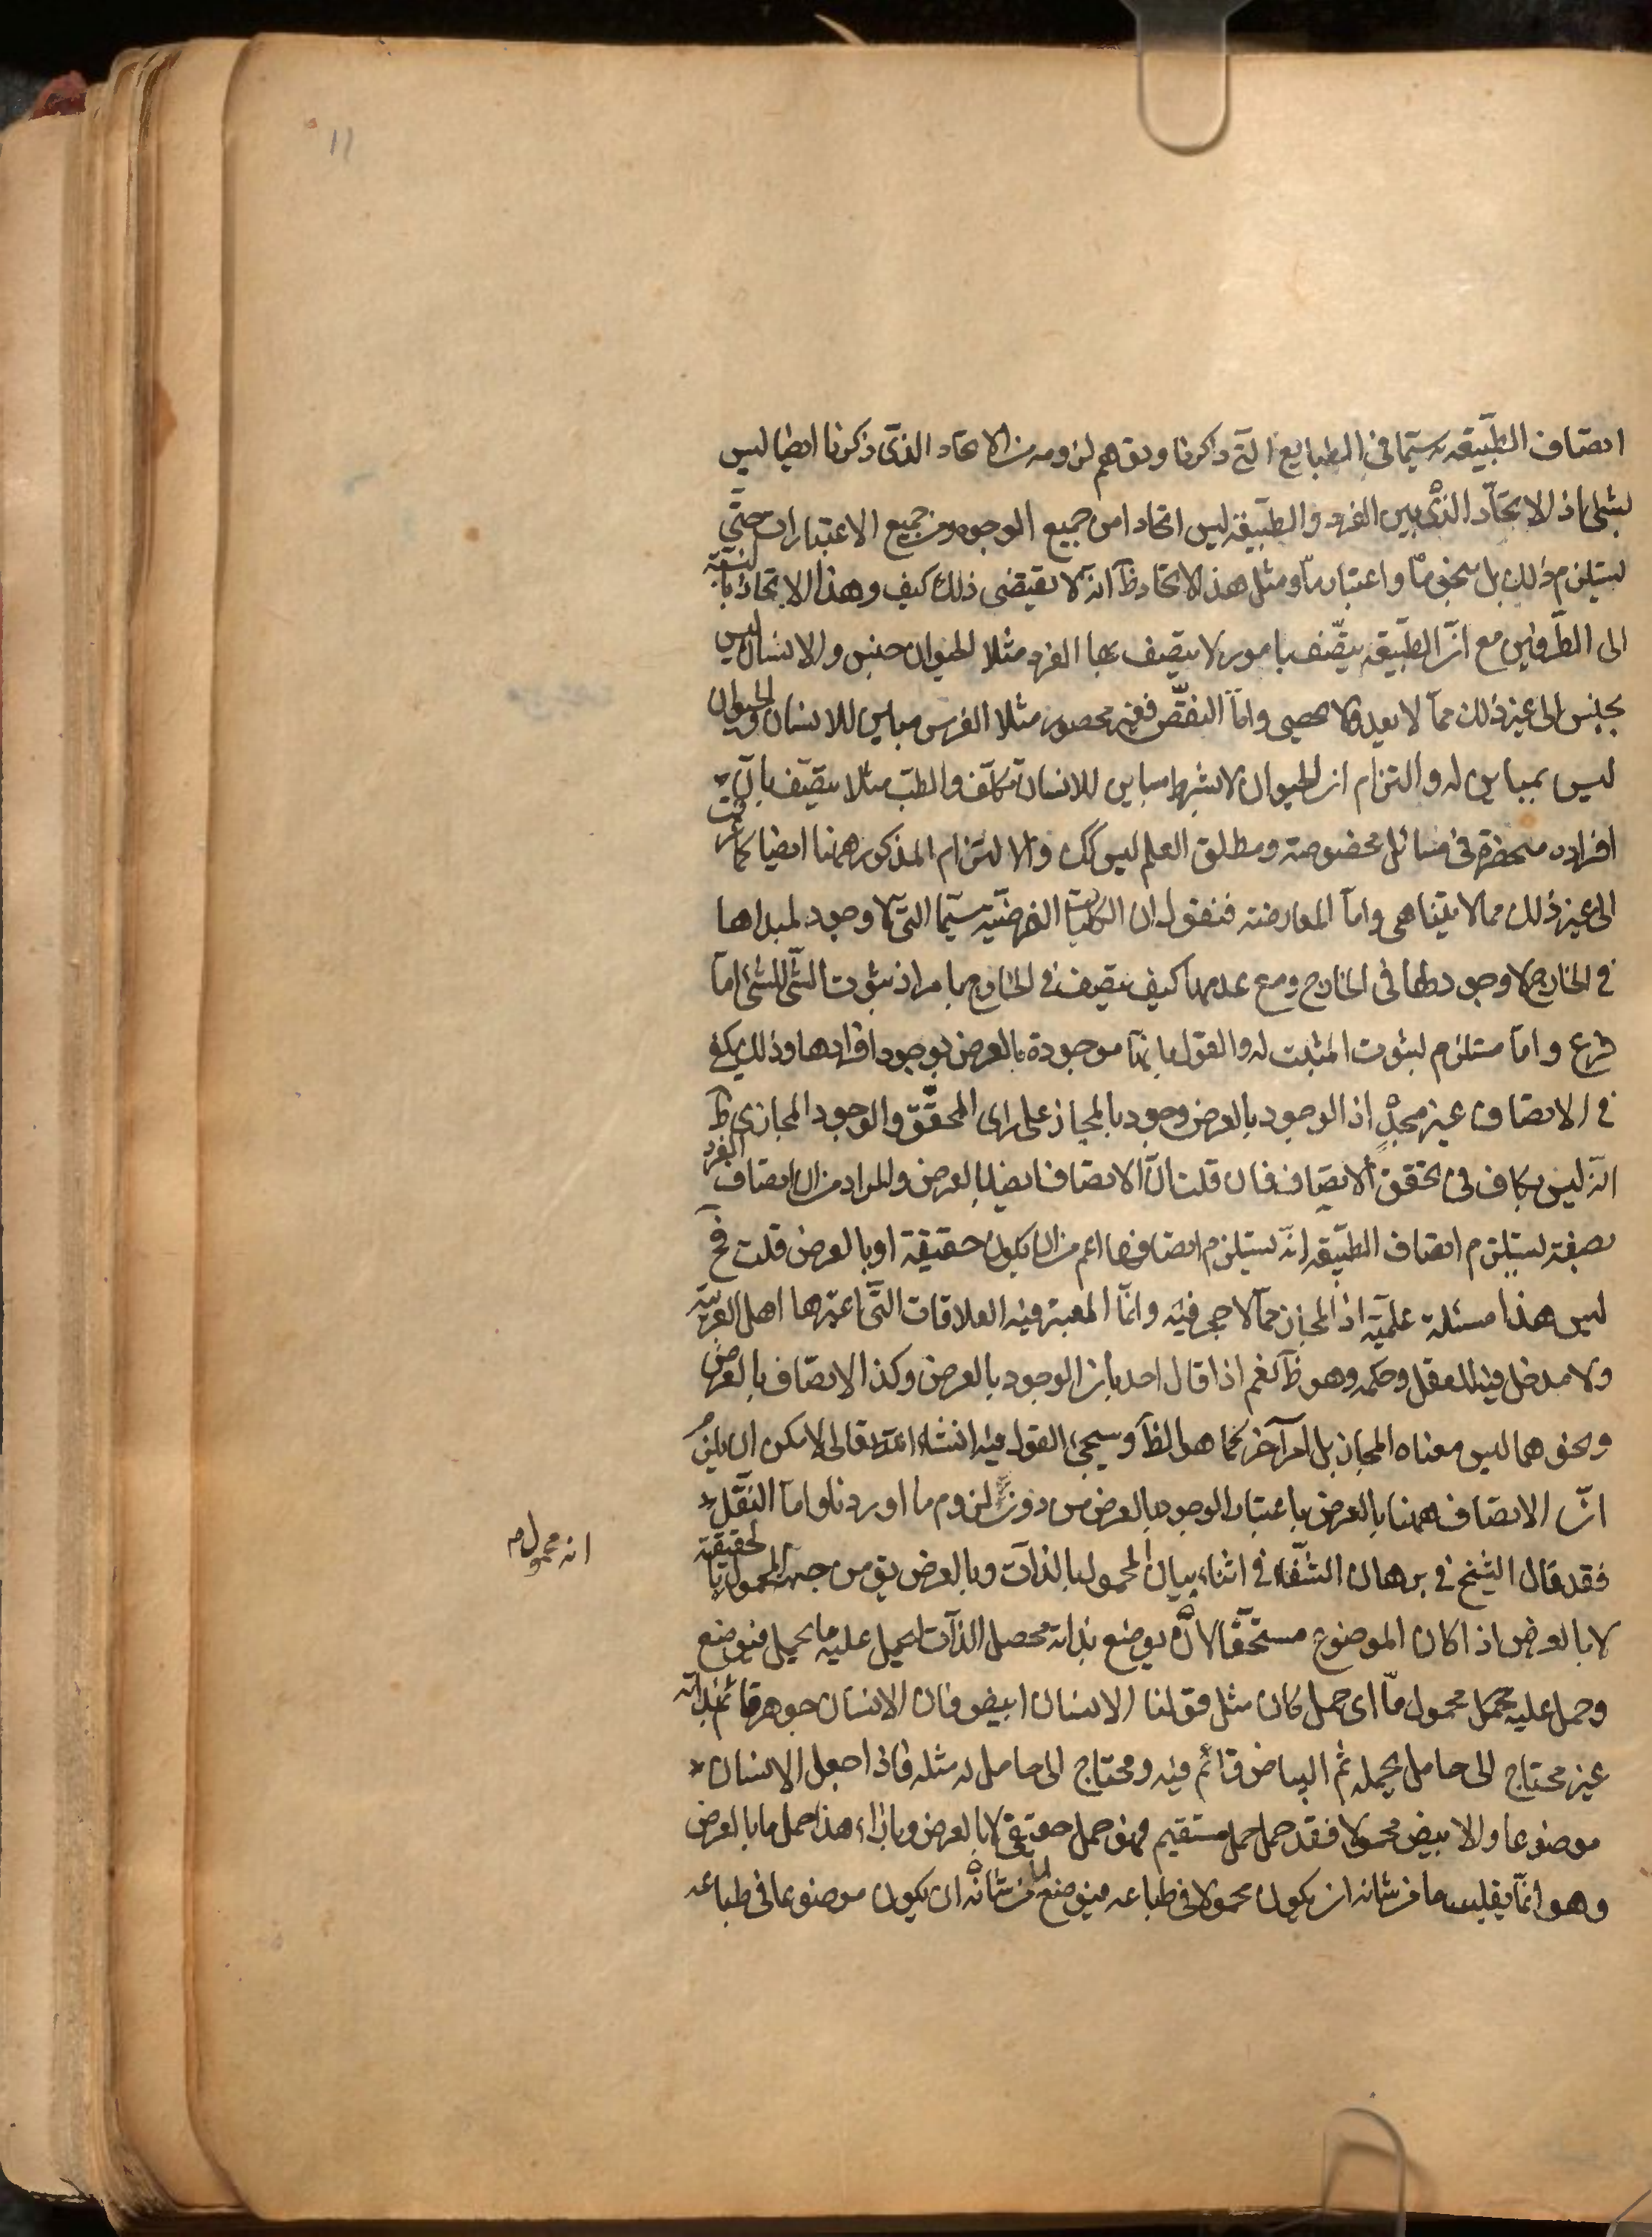 ١١
اتصاف الطبيعه سيما في الطبايع التي ذكرنا وتوهم لزومه من الاتحاد الذي ذكرنا ايضا ليس
بشئ اذ الاتحاد الذي بين الفرد والطبيعة ليس اتحادا من جميع الوجوه ومن جميع الاعتبارات حتى
يستلزم ذلك بل بنحو ما واعتبار ما ومثل هذا الاتحاد ظ انه لا يقتضى ذلك كيف وهذا الاتحاد بالنسبة
الى الطرفين مع ان الطبيعه يتصف بامور لا يتصف بها الفرد مثلا الحيوان جنس والانسان ليس
بجنس الى غير ذلك مما لا يعد ولا يحصى واما النقض فغير محصور مثلا الفرس مباين للانسان والحيوان
ليس بمباين له والتزام ان الحيوان لا بشرط مباين للانسان تكلف والطب مثلا يتصف بان
افراده منحصرة في مسائل مخصوصة ومطلق العلم ليس كك والالتزام المذكور ههنا ايضا كما ترى
الى غير ذلك مما لا يتناهى واما المعارضة فنقول ان الكليات الفرضيه سيما التي لا وجود لمبداها
في الخارج لا وجود لها في الخارج ومع عدمها كيف يتصف في الخارج بامر اذ ثبوت الشئ للشئ اما
فرع واما مستلزم لثبوت المثبت له والقول بانها موجودة بالعرض بوجود افرادها وذلك يكفي
في الاتصاف غير مجد اذ الوجود بالعرض وجود بالمجاز على راى المحقق والوجود المجازى ظ
انه ليس بكاف في تحقق الاتصاف فان قلت ان الاتصاف ايضا بالعرض والمراد من ان اتصاف الفرد
بصفة يستلزم اتصاف الطبيعه انه يستلزم اتصافها اعم من ان يكون حقيقة او بالعرض قلت فح
ليس هذا مسئلة علمية اذ المجاز مما لا حجر فيه وانما المعتبر فيه العلاقات التي اعتبرها اهل العربية
ولا مدخل فيه للعقل وحكمه وهو ظ نعم اذا قال احد بان الوجود بالعرض وكذا الاتصاف بالعرض
ونحوهما ليس معناه المجاز بل امر آخر كما هو الظ وسيجئ القول فيه انشاء الله تعالى لامكن ان يلتزم
ان الاتصاف ههنا بالعرض باعتبار الوجود بالعرض من دون لزوم ما اوردنا واما النقل
فقد قال الشيخ في برهان الشفاء في اثناء بيان المحمول بالذات وبالعرض يق من جهة المحمول بالحقيقة
انه محمول م
لا بالعرض اذا كان الموضوع مستحقا لان يوضع بذاته محصل الذات ليحمل عليه ما يحمل فيوضع
وحمل عليه محمل محمول ما اى حمل كان مثل قولنا الانسان ابيض فان الانسان جوهر قائم بذاته
غير محتاج الى حامل يحمله ثم البياض قائم فيه ومحتاج الى حامل له مثله فاذا جعل الانسان
موضوعا والابيض محمولا فقد حمل حمل مستقيم فهو حمل حقيقي لا بالعرض وبازاء هذا حمل ما بالعرض
وهو انما يقلب ما من شانه ان يكون محمولا في طباعه فيوضع لما من شانه ان يكون موضوعا في طباعه